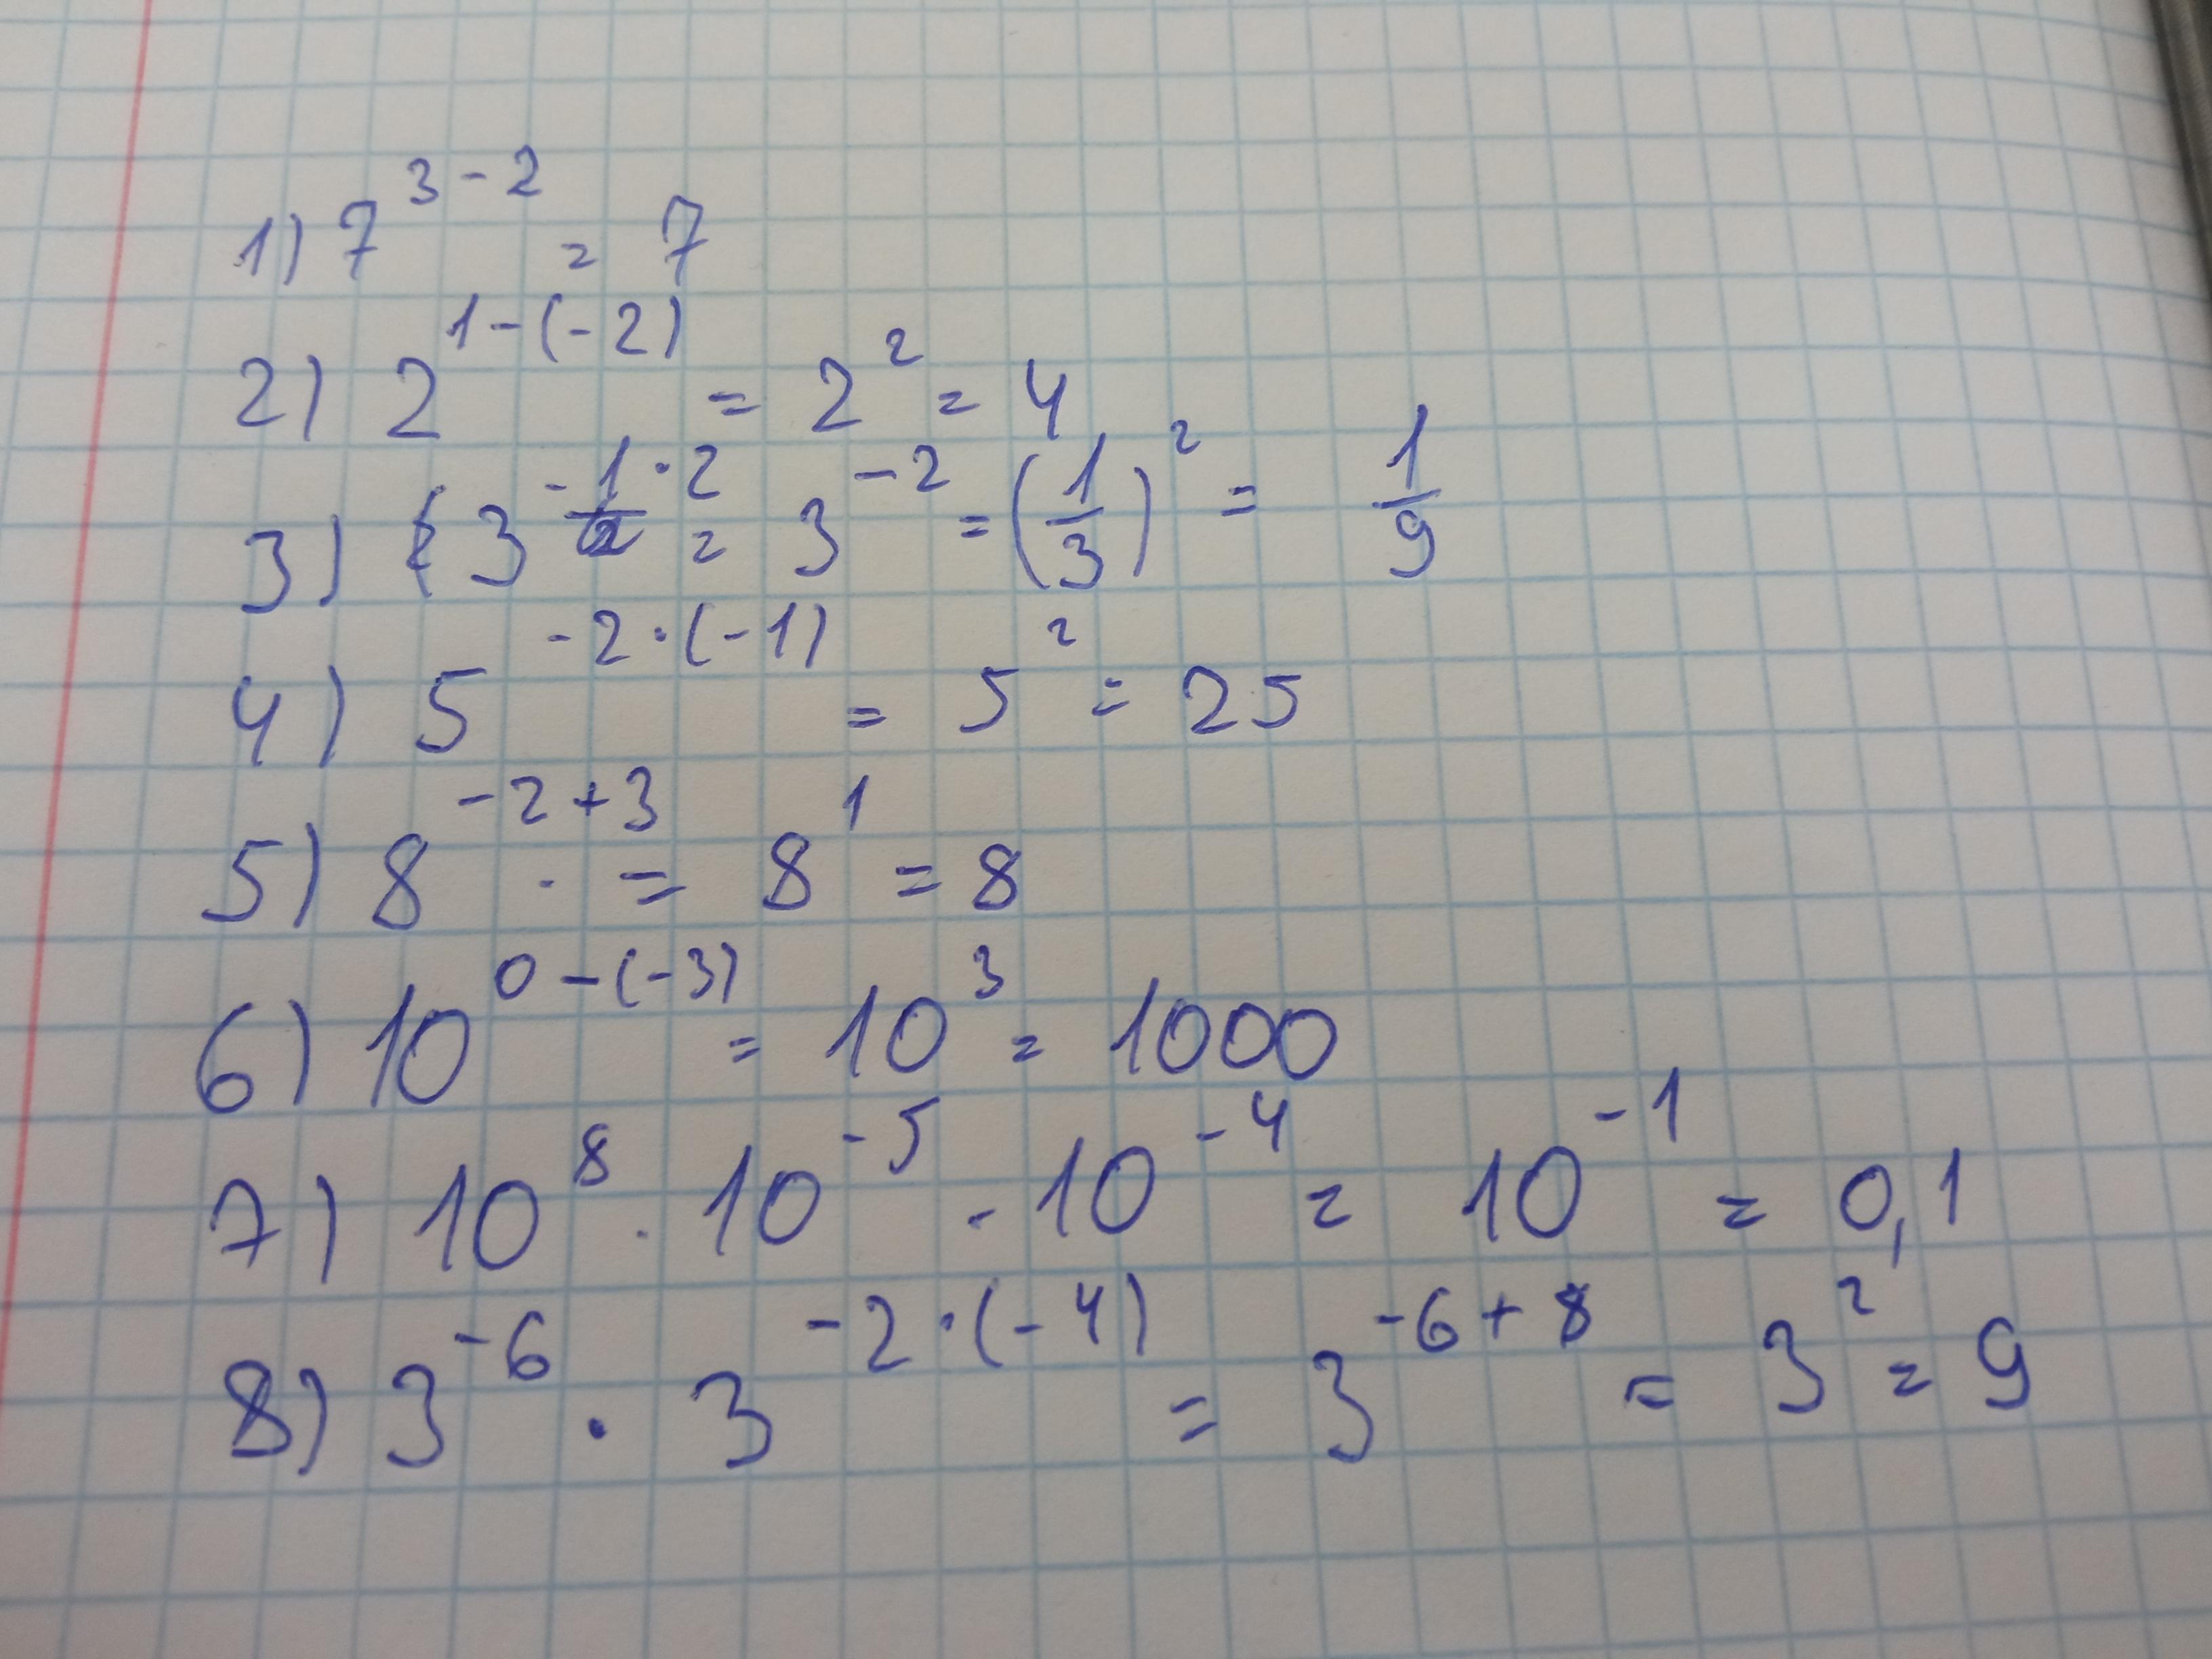 1) 7^{3-2} = 7
2) 2^{1-(-2)} = 2^2 = 4
3) 3^{-1·2} = 3^{-2} = (1/3)^2 = 1/9
4) 5^{-2·(-1)} = 5^2 = 25
5) 8^{-2+3} = 8^1 = 8
6) 10^{0-(-3)} = 10^3 = 1000
7) 10^8 · 10^{-5} · 10^{-4} = 10^{-1} = 0,1
8) 3^{-6} · 3^{-2·(-4)} = 3^{-6+8} = 3^2 = 9